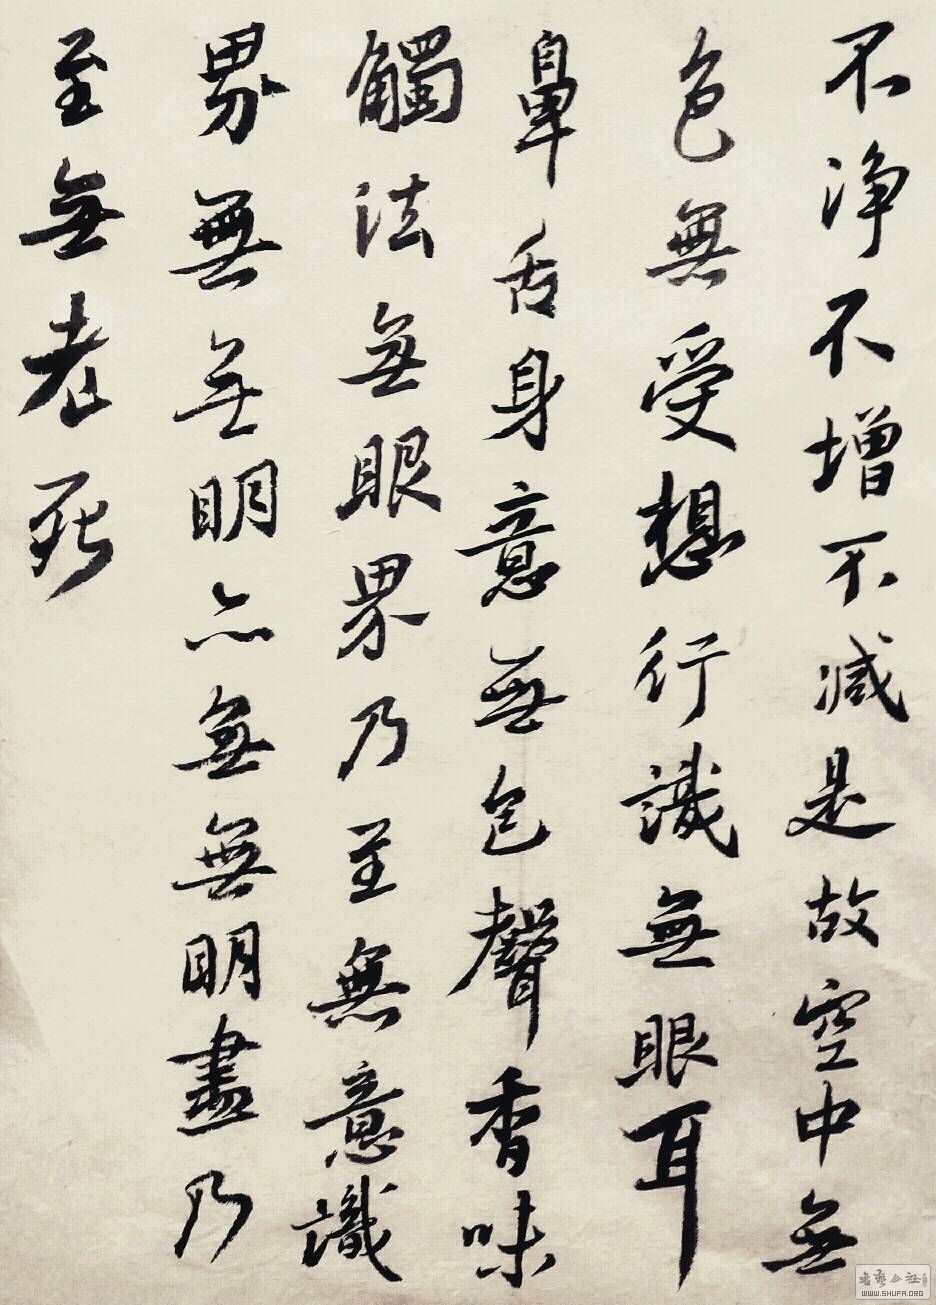 不淨不增不減是故空中無
色無受想行識無眼耳
鼻舌身意無色聲香味
觸法無眼界乃至無意識
界無無明亦無無明盡乃
至無老死
書藝公社
WWW.SHUFA.ORG